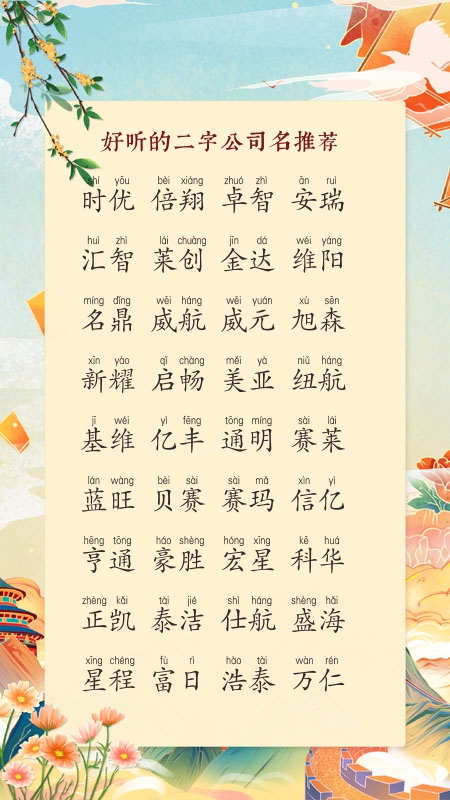 好听的二字公司名推荐
shí yōu bèi xiáng zhuó zhì ān ruì
时优 倍翔 卓智 安瑞
huì zhì lái chuàng jīn dá wéi yáng
汇智 莱创 金达 维阳
míng dǐng wēi háng wēi yuán xù sēn
名鼎 威航 威元 旭森
xīn yào qǐ chàng měi yà niǔ háng
新耀 启畅 美亚 纽航
jī wéi yì fēng tōng míng sài lái
基维 亿丰 通明 赛莱
lán wàng bèi sài sài mǎ xìn yì
蓝旺 贝赛 赛玛 信亿
hēng tōng háo shèng hóng xīng kē huá
亨通 豪胜 宏星 科华
zhèng kǎi tài jié shì háng shèng hǎi
正凯 泰洁 仕航 盛海
xīng chéng fù rì hào tài wàn rén
星程 富日 浩泰 万仁